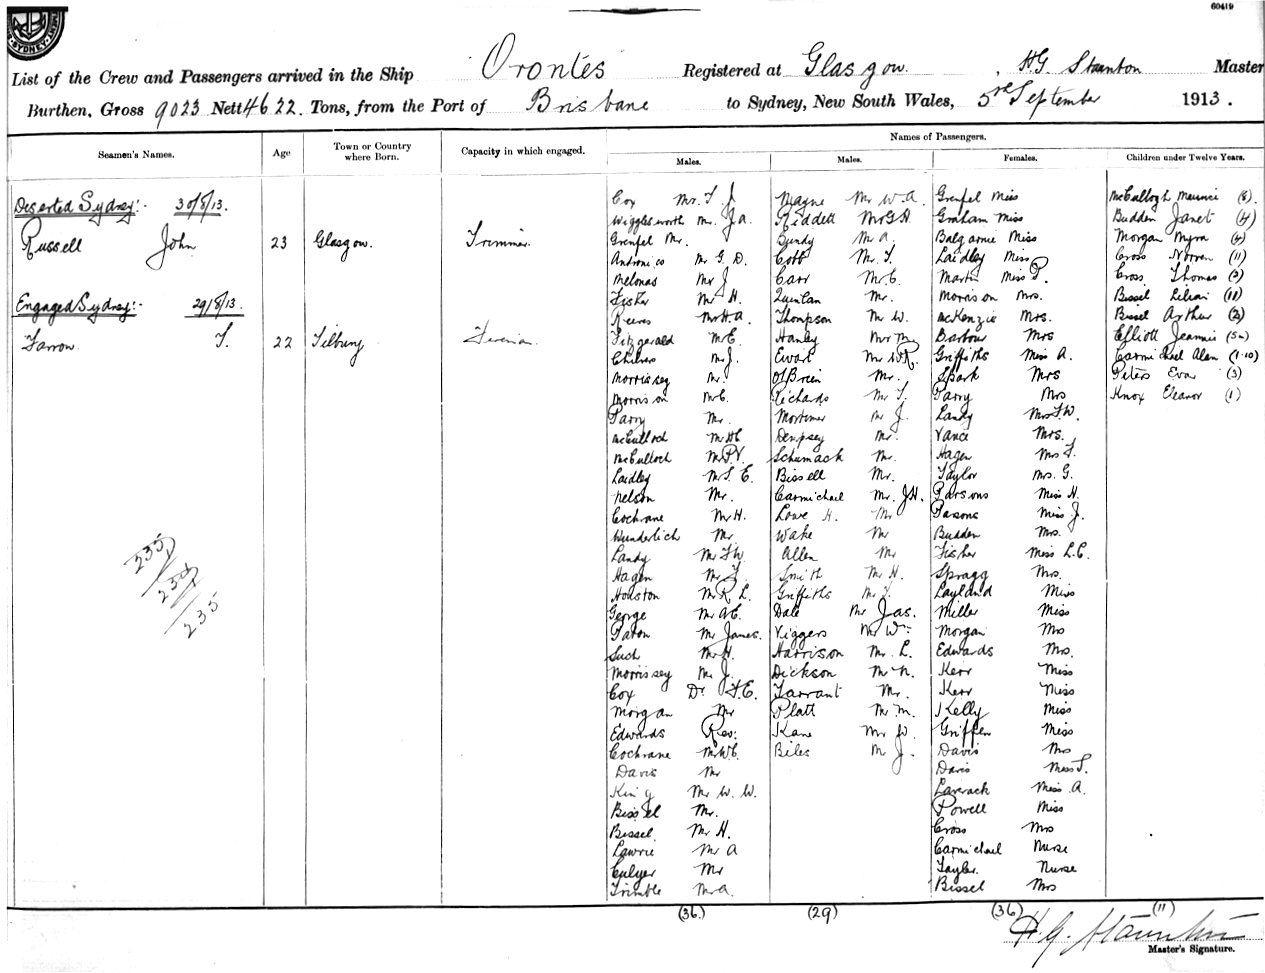 60419
SYDNEY
List of the Crew and Passengers arrived in the Ship Orontes Registered at Glasgow, H.G. Staunton Master
Burthen, Gross 9023 Nett 4622 Tons, from the Port of Brisbane to Sydney, New South Wales, 5th September 1913.
Seamen's Names. Age Town or Country where Born. Capacity in which engaged. Names of Passengers.
Males. Males. Females. Children under Twelve Years.
Deserted Sydney:- 30/8/13.
Russell John 23 Glasgow. Trimmer.
Engaged Sydney:- 29/8/13.
Farrow T. 22 Tilbury Fireman
235
234
235
Cox Mr. T J
Wigglesworth Mr. Ja.
Grenfel Mr.
Andronico Mr G. D.
Melonas Mr J
Fisher Mr H.
Reeves Mr H.A.
Fitzgerald Mr E.
Mr J.
Morrissey Mr.
Morrison Mr C.
Parry Mr.
McCulloch Mr HC
McCulloch Mr P.V.
Laidley Mr S. E.
Nelson Mr.
Cochrane Mr H.
Wunderlich Mr
Landy Mr F.W.
Hagen Mr F.
Houston Mr R L.
George Mr A.E.
Paton Mr James.
Such Mr H.
Morrissey Mr J.
Cox Dr F.E.
Morgan Mr
Edwards Rev:
Cochrane Mr W.C.
Davis Mr
King Mr W. W.
Bissel Mr.
Bissel Mr H.
Lawrie Mr A
Culyer Mr
Trimble Mr A.
(36.)
Mayne Mr W. A.
Riddett Mr G.A.
Bundy Mr A.
Cobb Mr. F.
Carr Mr C.
Quinlan Mr.
Thompson Mr W.
Hanly Mr M
Ewart Mr W.R.
O'Brien Mr.
Richards Mr F.
Mortimer Mr J.
Dempsey Mr.
Schumack Mr.
Bissell Mr.
Carmichael Mr. J.H.
Lowe H. Mr
Wake Mr
Allen Mr
Smith Mr H.
Griffiths Mr F.
Dale Mr Jas.
Viggers Mr Wm
Harrison Mr. L.
Dickson Mr N.
Tarrant Mr.
Platt Mr M.
Kane Mr W.
Biles Mr J.
(29)
Grenfel Miss
Graham Miss
Balgarnie Miss
Laidley Miss
Martin Miss P.
Morrison Mrs.
McKenzie Mrs.
Barbour Mrs
Griffiths Miss A.
Spark Mrs
Parry Mrs
Landy Mrs F.W.
Vance Mrs.
Hagen Mrs F.
Taylor Mrs. G.
Parsons Miss H.
Pasons Miss J.
Budden Mrs.
Fisher Miss L.C.
Spragg Mrs.
Layland Miss
Miller Miss
Morgan Mrs
Edwards Mrs.
Kerr Miss
Kerr Miss
Kelly Miss
Griffen Miss
Davis Mrs
Davis Miss F.
Laverack Miss A.
Powell Miss
Cross Mrs
Carmichael Nurse
Tayler. Nurse
Bissel Mrs
(36)
McCullogh Maurice (8).
Budden Janet (4)
Morgan Myra (4)
Cross Norren (11)
Cross Thomas (3)
Bissel Lilian (10)
Bissel Arthur (2)
Elliott Jeannie (5m)
Carmichael Alan (1.10)
Peters Eva (3)
Knox Eleanor (1)
(11)
H. G. Staunton
Master's Signature.